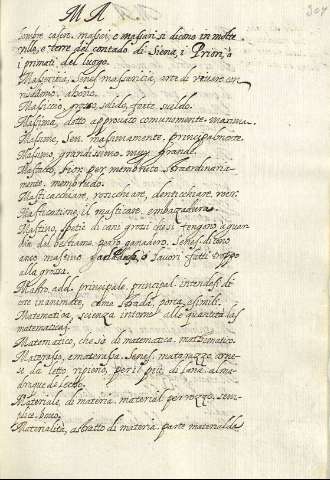 MA
307
sonbre casen. massai, e massari si dicono in molte
ville, e terre del contado di Siena, i Priori, ò
i primati del luogo.
Masseritia, Senes. massaritia, arte di vivere con
risparmio, ahorro.
Massiccio, grosso, solido, forte, sueldo.
Massima, detto approvato comunemente. maxima.
Massime, Sen. massimamente, principalmente
Massimo, grandissimo. muy grande.
Mastacco, huom per membruto straordinaria-
mente, membrudo.
Masticacchiare, rosicchiare, denticchiare, roer.
Masticatione, il masticare,
Mastino, spetie di cani grossi che si tengono à guar-
dia del bestiame. perro ganadero. Senes. dicono
anco massimo lavori fatti troppo
alla grossa.
Mastro, add. principale, principal. intendesi di
cose inanimate, come strada, porta, e simili.
Matematica, scienza intorno alle quantità. las
matematicas.
Matematico, che sà di matematica, mathematico.
Materasso, e materassa. Senes. matarazzo, arne-
se da letto, ripieno, per il più, di lana. alma-
draque de lecho.
Materiale, di materia. material. per rozzo, sem-
plice.
Materialità, astratto di materia. parte material da